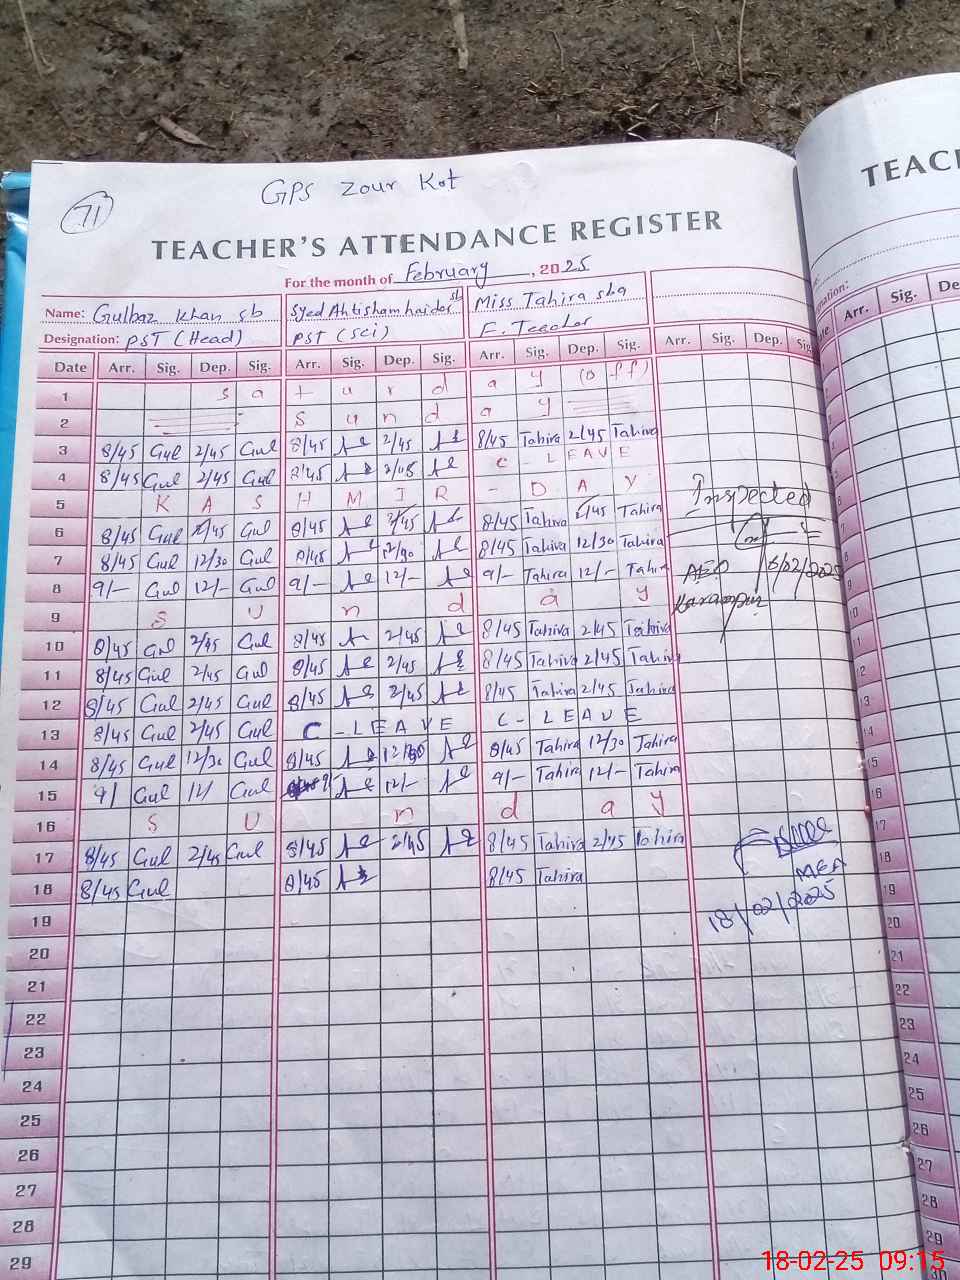 GPS Zour Kot
71
TEACHER'S ATTENDANCE REGISTER
TEAC
For the month of February, 2025
Name: Gulbaz Khan sb Syed Ahtisham haider sb Miss Tahira sba
Designation: PST (Head) PST (Sci) F. Teacher
Date Arr. Sig. Dep. Sig. Arr. Sig. Dep. Sig. Arr. Sig. Dep. Sig. Arr. Sig. Dep. Sig. Arr. Sig.
1 S a t u r d a y (off)
2 S u n d a y
3 8/45 Gul 2/45 Gul 8/45 2/45 8/45 Tahira 2/45 Tahira
4 8/45 Gul 2/45 Gul 8/45 2/45 C - LEAVE
5 K A S H M I R - D A Y
Inspected
6 8/45 Gul 2/45 Gul 8/45 2/45 8/45 Tahira 2/45 Tahira
7 8/45 Gul 12/30 Gul 8/45 8/45 Tahira 12/30 Tahira
8 9/- Gul 12/- Gul 9/- 12/- 9/- Tahira 12/- Tahira
AEO
9 S u n d a y
Harampur
10 8/45 Gul 2/45 Gul 8/45 2/45 8/45 Tahira 2/45 Tahira
11 8/45 Gul 2/45 Gul 8/45 2/45 8/45 Tahira 2/45 Tahira
12 8/45 Gul 2/45 Gul 8/45 2/45 8/45 Tahira 2/45 Tahira
13 8/45 Gul 2/45 Gul C - LEAVE C - LEAVE
14 8/45 Gul 12/30 Gul 8/45 12/30 8/45 Tahira 12/30 Tahira
15 9/ Gul 12/ Gul 12/- 9/- Tahira 12/- Tahira
16 S U n d a y
17 8/45 Gul 2/45 Gul 8/45 2/45 8/45 Tahira 2/45 Tahira
18 8/45 Gul 8/45 8/45 Tahira
MEA
18/02/2025
19
20
21
22
23
24
25
26
27
28
29
18-02-25 09:15